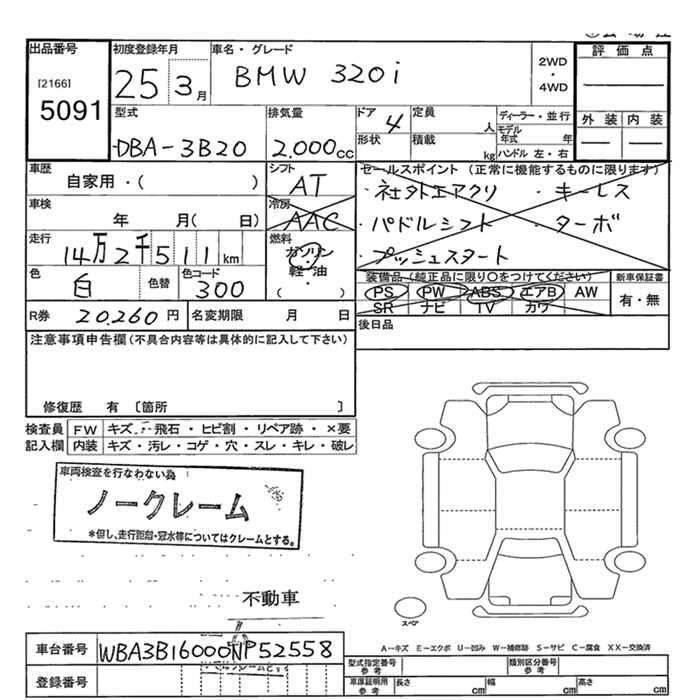 出品番号 初度登録年月 車名・グレード 評価点
[2166] 25 3月 BMW 320i 2WD・4WD
5091 型式 排気量 ドア 定員 ディーラー・並行 外装 内装
DBA-3B20 2.000cc 4 人 モデル年式 年
形状 積載 kg ハンドル 左・右
車歴 シフト セールスポイント (正常に機能するものに限ります)
自家用・( ) AT ・社外エアクリ ・キーレス
車検 冷房 ・パドルシフト ・ターボ
年 月( 日) AAC ・プッシュスタート
走行 燃料
14万2千511km ガソリン・軽油・( )
色 色替 色コード 装備品(純正品に限り○をつけてください) 新車保証書
白 300 PS PW ABS エアB AW 有・無
SR ナビ TV カワ
R券 20,260円 名変期限 月 日 後日品
注意事項申告欄(不具合内容等は具体的に記入して下さい)
修復歴 有 〔箇所 〕
検査員 FW キズ・飛石・ヒビ割・リペア跡・×要
記入欄 内装 キズ・汚レ・コゲ・穴・スレ・キレ・破レ
車両検査を行なわない為
ノークレーム
*但し、走行距離・冠水等についてはクレームとする。
不動車
スペア
A-キズ E-エクボ U-凹み W-補修跡 S-サビ C-腐食 XX-交換済
車台番号 WBA3B16000NP52558 型式指定番号 参考 類別区分番号 参考
登録番号 車庫証明用 参考 長さ cm 幅 cm 高さ cm